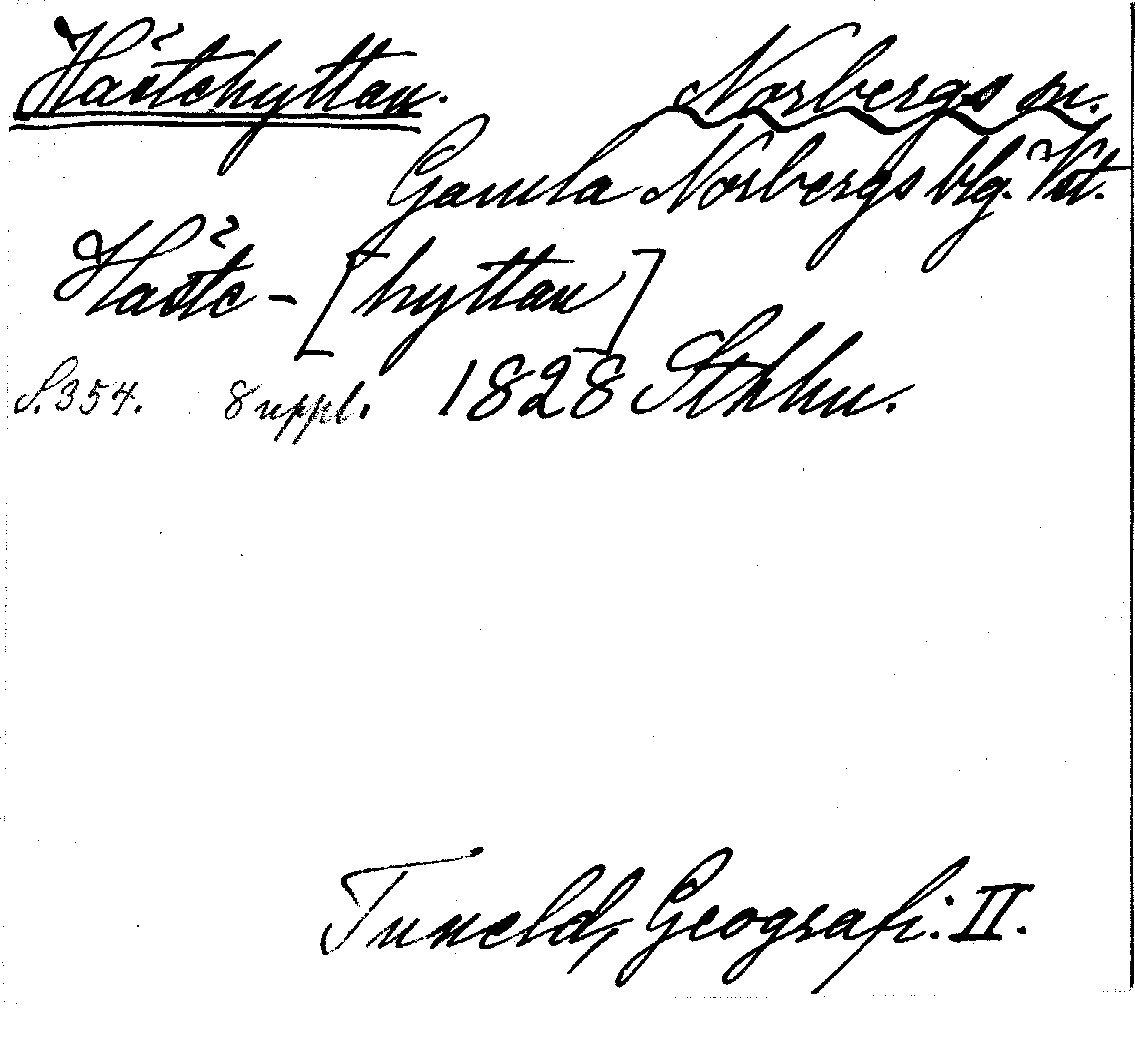 Hästehyttan. Norbergs sn.
Gamla Norbergs blg. Vst.
Häste-[hyttan]
S. 354. Suppl. 1828 Sthlm.
Tuneld, Geografi: II.